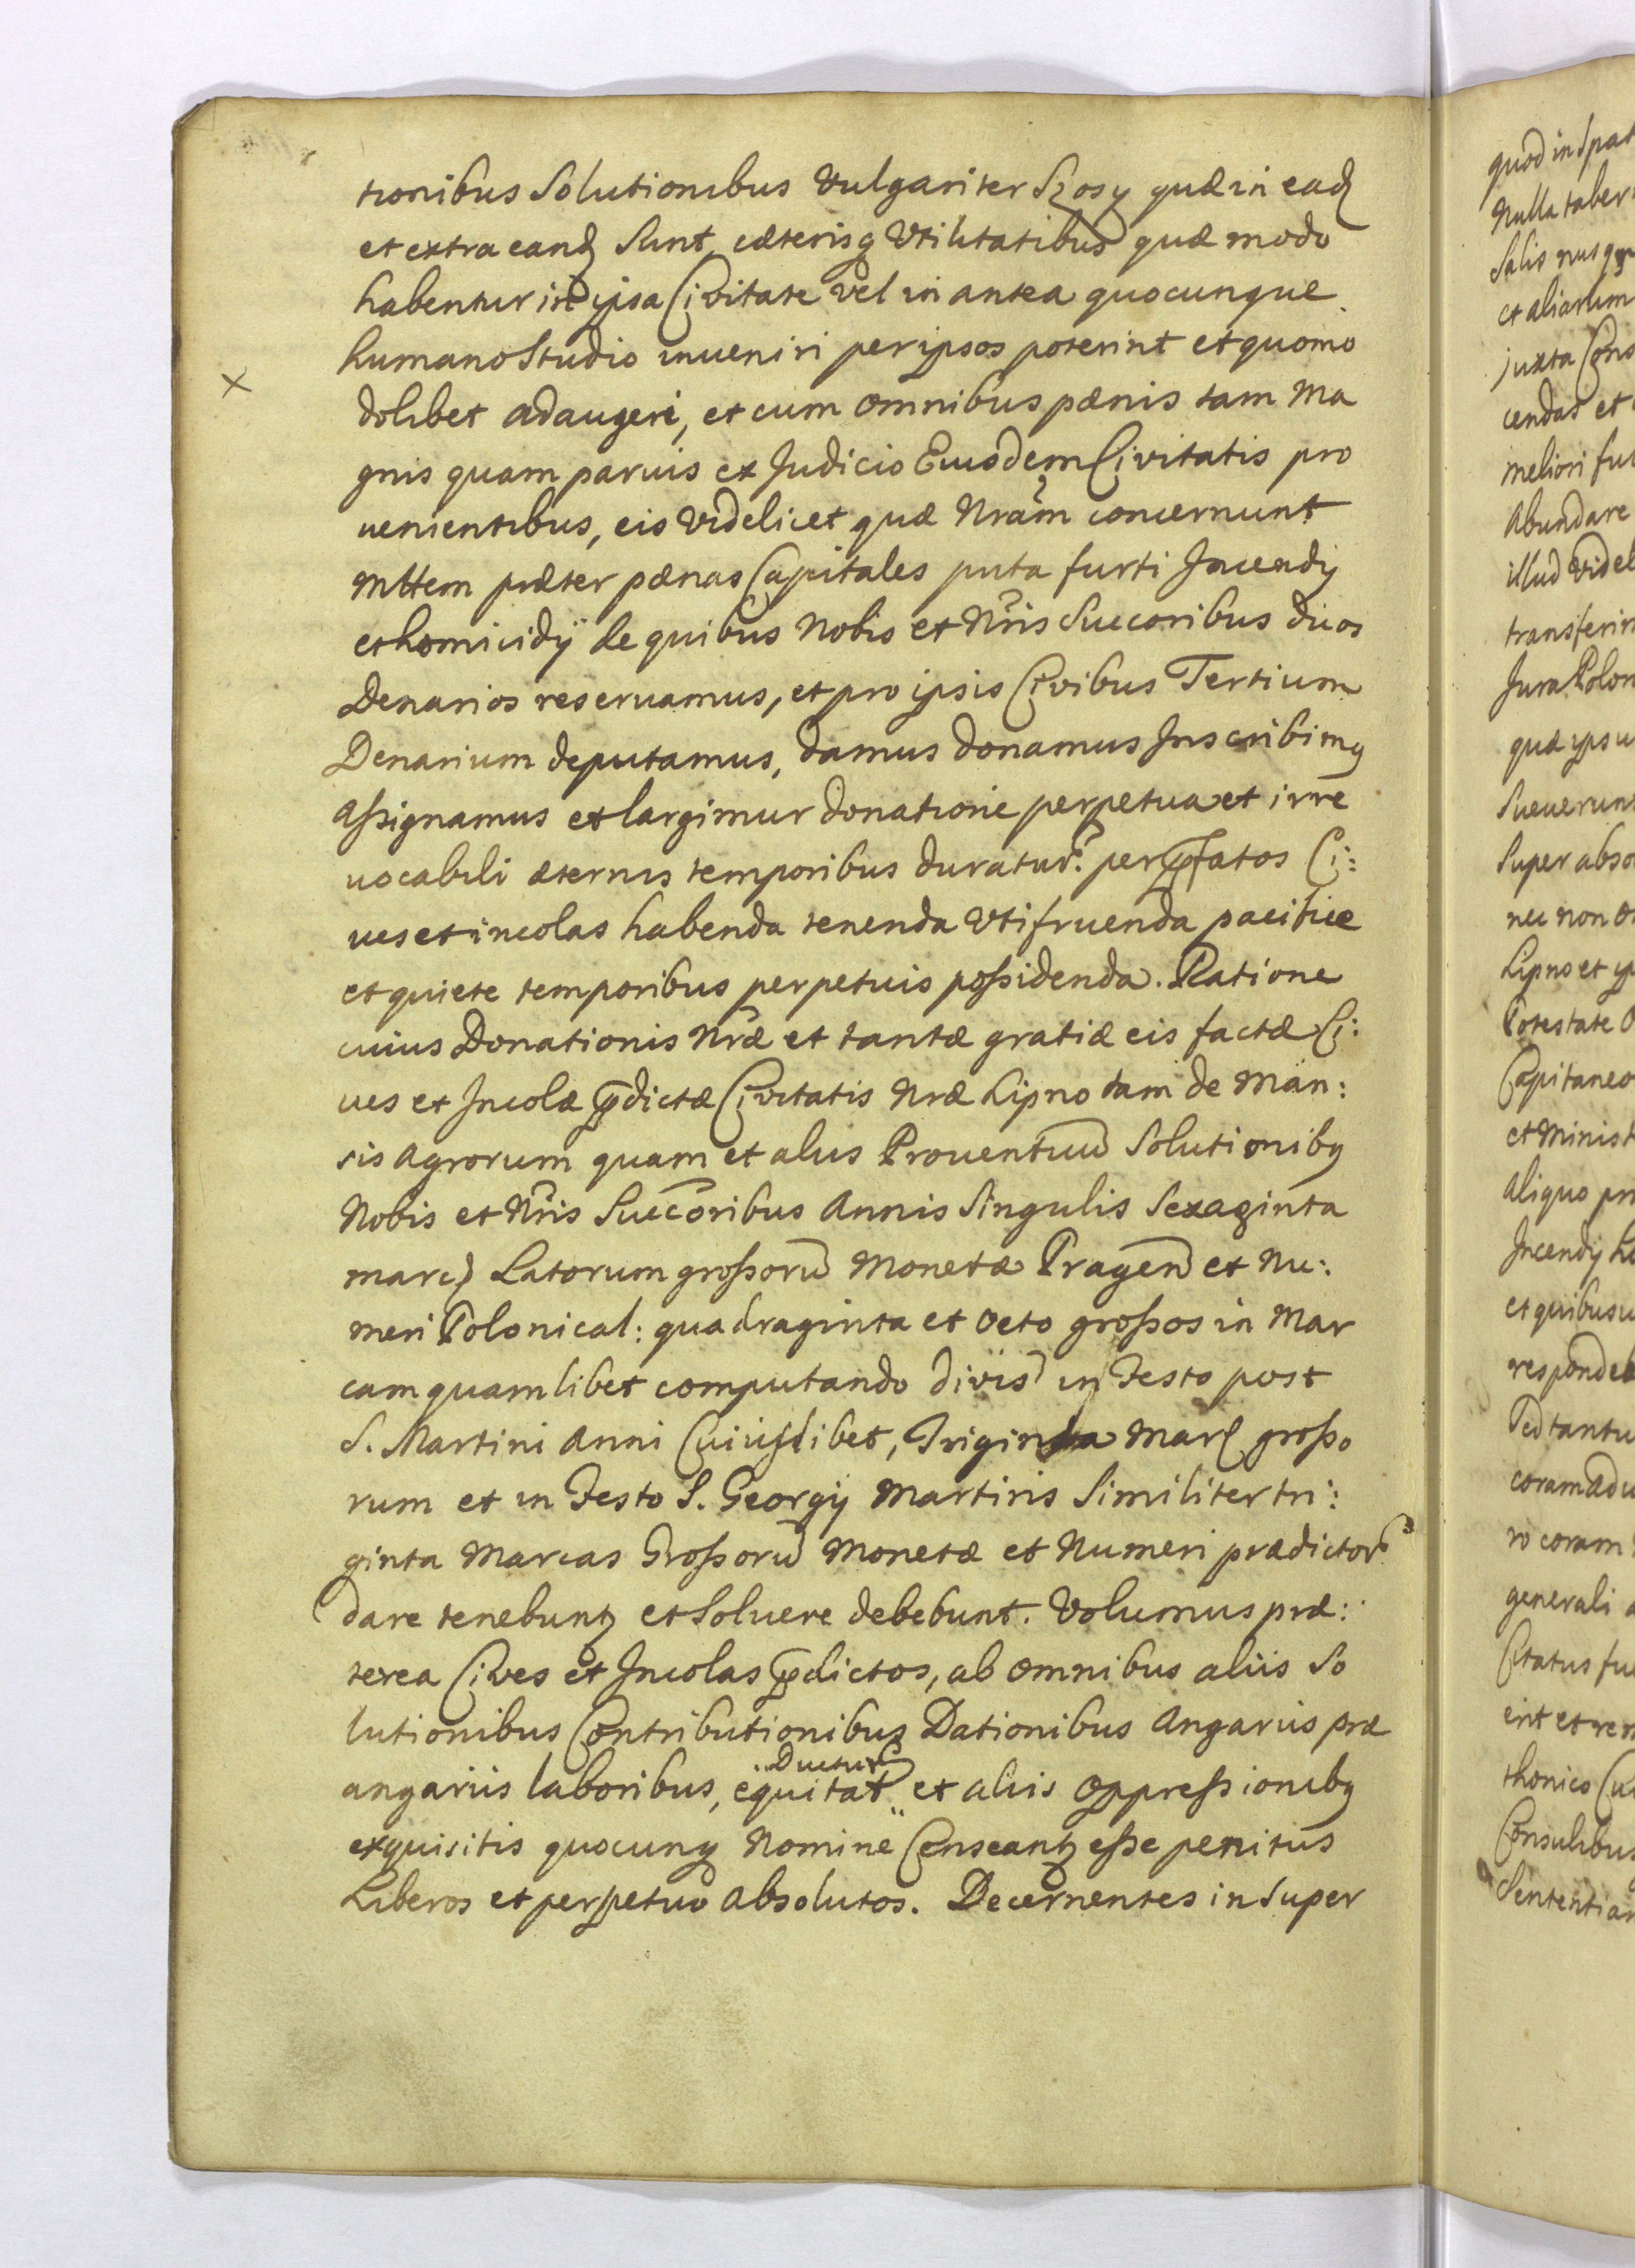 tionibus Solutionibus Vulgariter Szosy quæ in eadꝫ
et extra eandꝫ Sunt, cæterisqꝫ Vtilitatibus quæ modo
habentur in ipsa Civitate vel in antea quocunque
humano Studio inueniri per ipsos poterint et quomo
dolibet adaugeri, et cum omnibus pœnis tam Ma
gnis quam paruis ex Judicio Eiusdem Civitatis pro
uenientibus, eis videlicet quæ Nrãm concernunt
Mttem præter pœnas Capitales puta furti Incendij
et homicidÿ de quibus Nobis et Nris̃ Succoribus duos
Denarios reseruamus, et pro ipsis Civibus Tertium
Denarium deputamus, damus donamus Inscribimꝰ
Aſsignamus et largimur donatione perpetua et irre
uocabili æternis temporibus duratur: per p̃fatos Ci:
ues et incolas habenda tenenda Vtifruenda pacifice
et quiete temporibus perpetuis poſsidenda. Ratione
cuius Donationis Nræ et tantæ gratiæ eis factæ Ci:
ues et Incolæ p̃dictæ Civitatis Nræ Lipno tam de Man:
sis Agrorum quam et aliis Prouentuũ Solutionibꝰ
Nobis et Nris̃ Succõribus Annis Singulis Sexaginta
marcꝫ Latorum groſsorũ Monetæ Pragen̄ et Nu:
meri Polonical: quadraginta et Octo groſsos in Mar
cam quamlibet computando divis̃ in Festo post
S. Martini Anni Cuiuslibet, Triginta Marc groſso
rum et in Festo S. Georgij Martiris Similiter tri:
ginta Marcas Groſsorũ Monetæ et Numeri prædictor̃
dare tenebuntꝫ et Soluere debebunt. Volumus præ:
terea Cives et Incolas p̃dictos, ab omnibus aliis So
lutionibus Contributionibus Dationibus Angariis præ
angariis laboribus, equitat̃ Ductur̃ et aliis Oppreſsionibꝰ
exquisitis quocunqꝫ Nomine Censeantꝫ eſse penitus
Liberos et perpetuo Absolutos. Decernentes in Super
quod in Spat
Nulla taber
Salis nusq
et aliarum
juxta Cons
cendas et
meliori fu
Abundare
illud videl
transferir
Jura Polon
quæ ipsu
Sueuerunt
Super abso
nec non o
Lipno et ip
Potestate O
Capitaneo
et Minist
Aliquo pr
Incendij h
et quibusu
respondeb
Sed tantu
coram adu
ro coram
generali a
Citatus fue
erit et re
thonico Cu
Consulibus
Sententiar